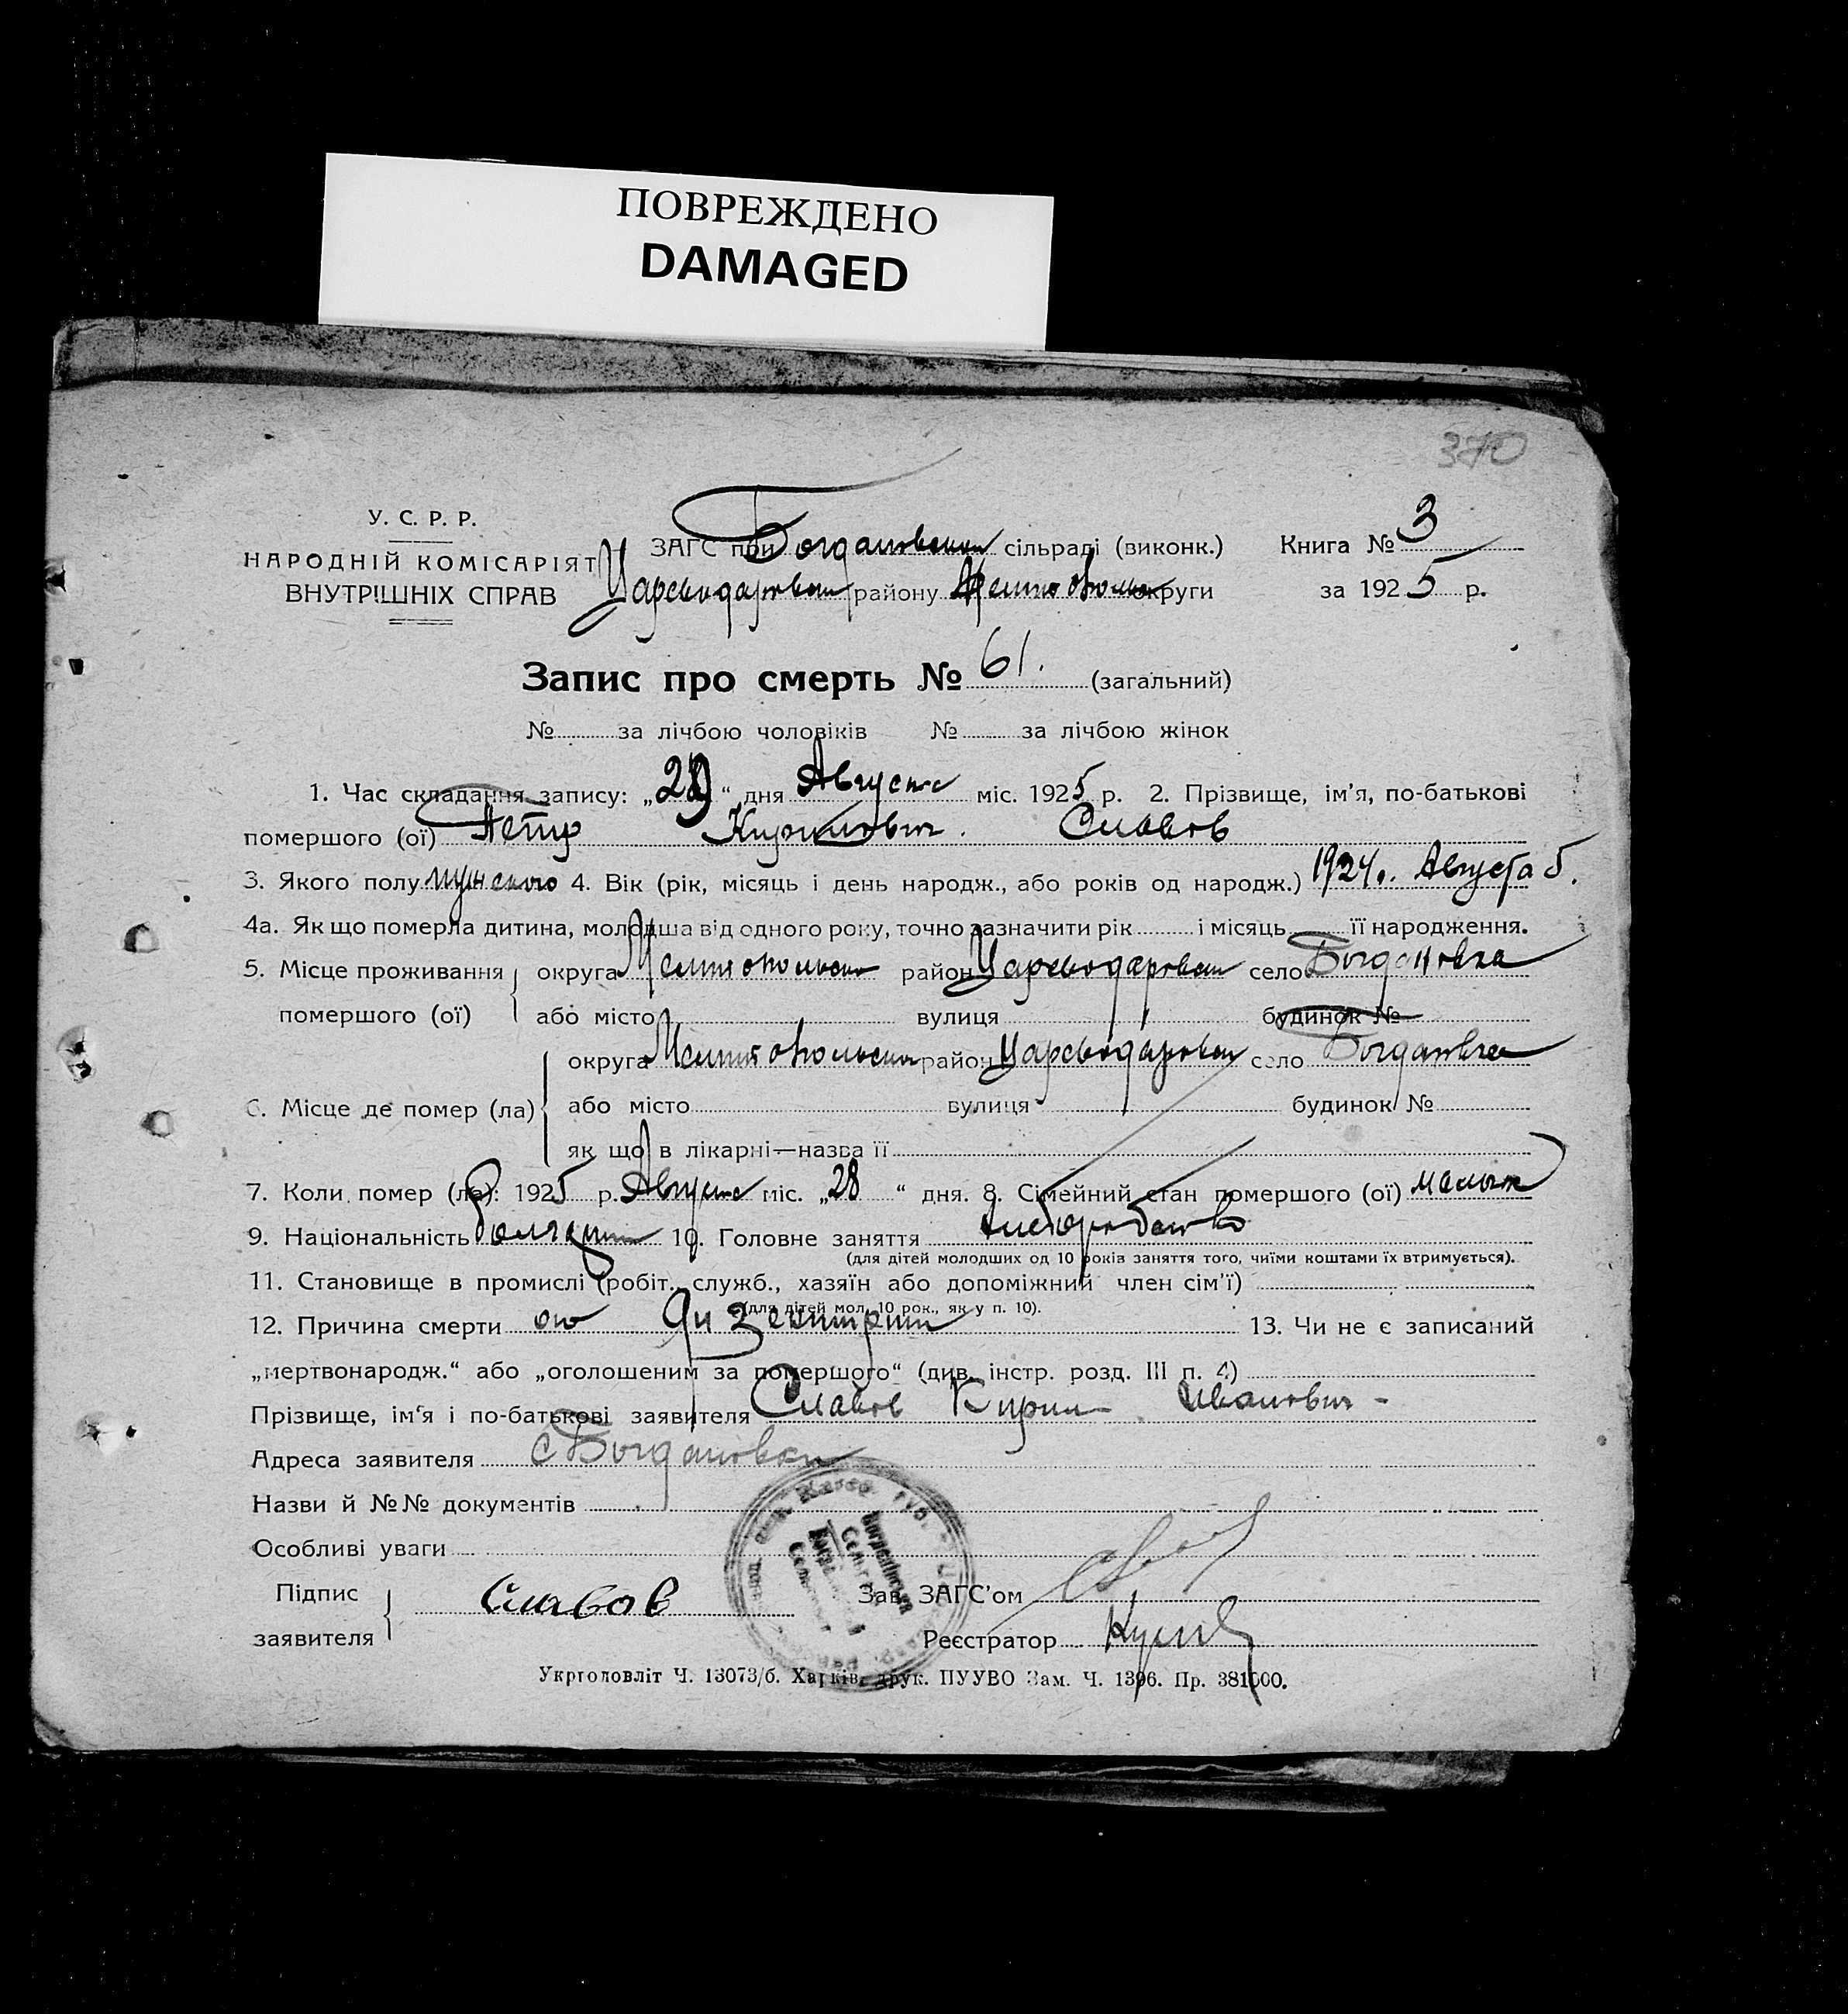 ПОВРЕЖДЕНО
DAMAGED
370
У. С. Р. Р.
НАРОДНІЙ КОМІСАРІЯТ
ВНУТРІШНІХ СПРАВ
ЗАГС при Богдановском сільраді (виконк.)
Царсводаровск району Мелитопольск округи
Книга № 3
за 1925 р.
Запис про смерть № 61. (загальний)
№ за лічбою чоловіків № за лічбою жінок
1. Час складання запису: „29“ дня Августа міс. 1925 р. 2. Прізвище, ім’я, по-батькові
помершого (ої) Петр Кирилович. Славов
3. Якого полу мужского 4. Вік (рік, місяць і день народж., або років од народж.) 1924г. Августа 5.
4а. Як що померла дитина, молодша від одного року, точно зазначити рік і місяць її народження.
5. Місце проживання помершого (ої) округа Мелитопольск район Царсводаровск село Богдановка
або місто вулиця будинок №
6. Місце де помер (ла) округа Мелитопольск район Царсводаровск село Богдановка
або місто вулиця будинок №
як що в лікарні—назва її
7. Коли помер (ла): 1925 р. Августа міс. „28“ дня. 8. Сімейний стан помершого (ої)
9. Національність болгарин 10. Головне заняття хлеборобство
(для дітей молодших од 10 років заняття того, чиїми коштами їх втримується).
11. Становище в промислі (робіт., служб., хазяїн або допоміжний член сім’ї)
(для дітей мол. 10 рок., як у п. 10).
12. Причина смерти от Дизентрии 13. Чи не є записаний
„мертвонародж.“ або „оголошеним за помершого“ (див. інстр. розд. III п. 4)
Прізвище, ім’я і по-батькові заявителя Славов Кирил Иванович -
Адреса заявителя с Богдановка
Назви й №№ документів
Особливі уваги
Підпис заявителя Славов
Зав. ЗАГС’ом
Реєстратор
Укрголовліт Ч. 13073/б. Харків, друк. ПУУВО Зам. Ч. 1396. Пр. 381000.